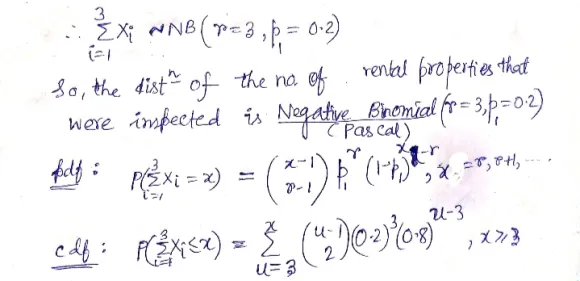 ∴ 3 Σ i=1 Xi ~ NB (r=3, p₁ = 0.2)
So, the distⁿ of the no. of rental properties that
were inspected is Negative Binomial (r=3, p₁=0.2)
(Pascal)
pdf : P(3 Σ i=1 Xi = x) = (x-1 r-1) p₁^r (1-p₁)^x-r, x = r, r+1, ....
cdf : P(3 Σ i=1 Xi ≤ x) = x Σ u=3 (u-1 2) (0.2)^3 (0.8)^u-3, x ≥ 3